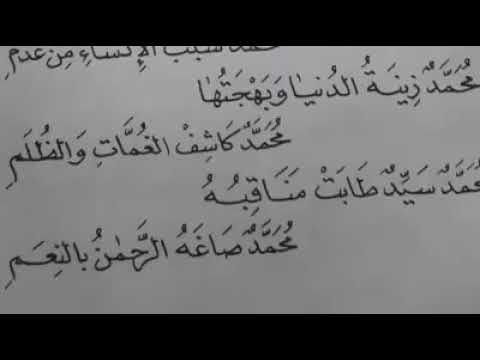 محمد سبب الإنشاء من عدم
مُحَمَّدٌ زِينَةُ الدُنيَا وَبَهْجَتُهَا
مُحَمَّدٌ كَاشِفُ الغُمَّاتِ وَالظُلَمِ
مُحَمَّدٌ سَيِّدٌ طَابَتْ مَنَاقِبُهُ
مُحَمَّدٌ صَاغَهُ الرَّحْمٰنُ بالنِعَمِ